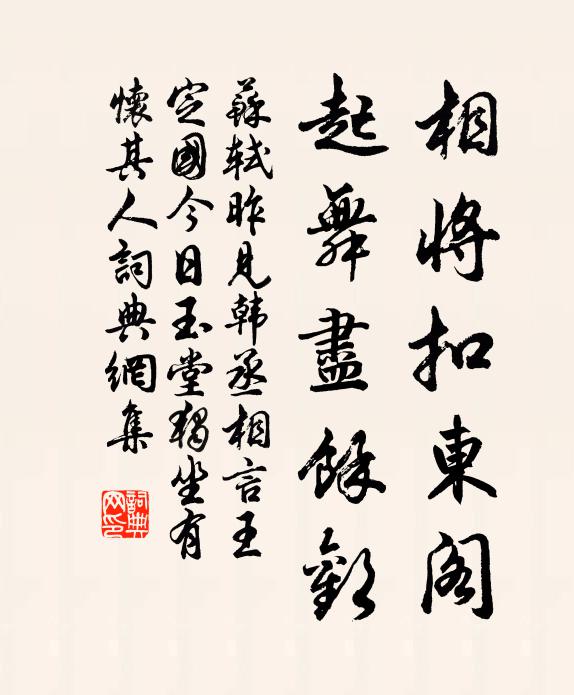 相將扣東閣
起舞盡餘歡
蘇軾昨見韩丞相言王
定國今日玉堂獨坐有
懷其人詞典網集
詞典
网印